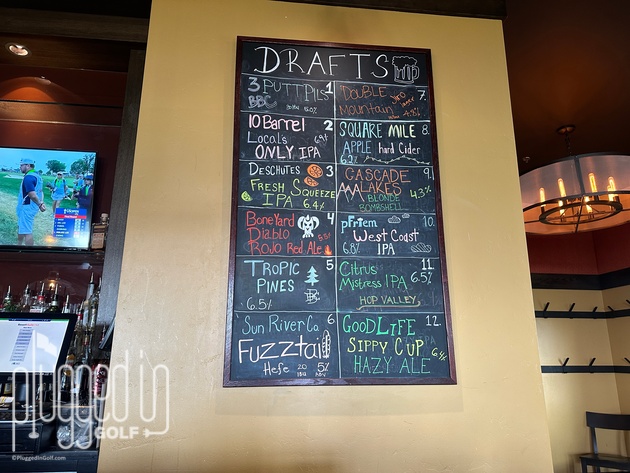 DRAFTS
3 PUTT PILS 1
BBC 5.0%
10 Barrel 2
Locals
ONLY IPA
DESCHUTES 3
FRESH SQUEEZE
IPA 6.4%
BONEYARD 4
DIABLO
ROJO Red Ale
TROPIC 5
PINES
6.5%
Sun River Co. 6
FUZZtail
Hefe 20 5%
IBU ABV
DOUBLE 7.
Mountain
SQUARE MILE 8.
APPLE hard Cider
6.2%
CASCADE 9.
LAKES 4.3%
BLONDE
BOMBSHELL
pFriem 10.
West Coast
6.8% IPA
Citrus 11.
Mistress IPA 6.5%
HOP VALLEY
GOODLIFE 12.
SIPPY CUP
HAZY ALE
plugged in
GOLF
©PluggedInGolf.com